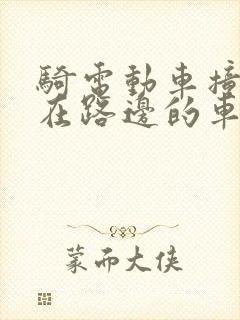 騎電動車撞
在路邊的車
蒙而大侠